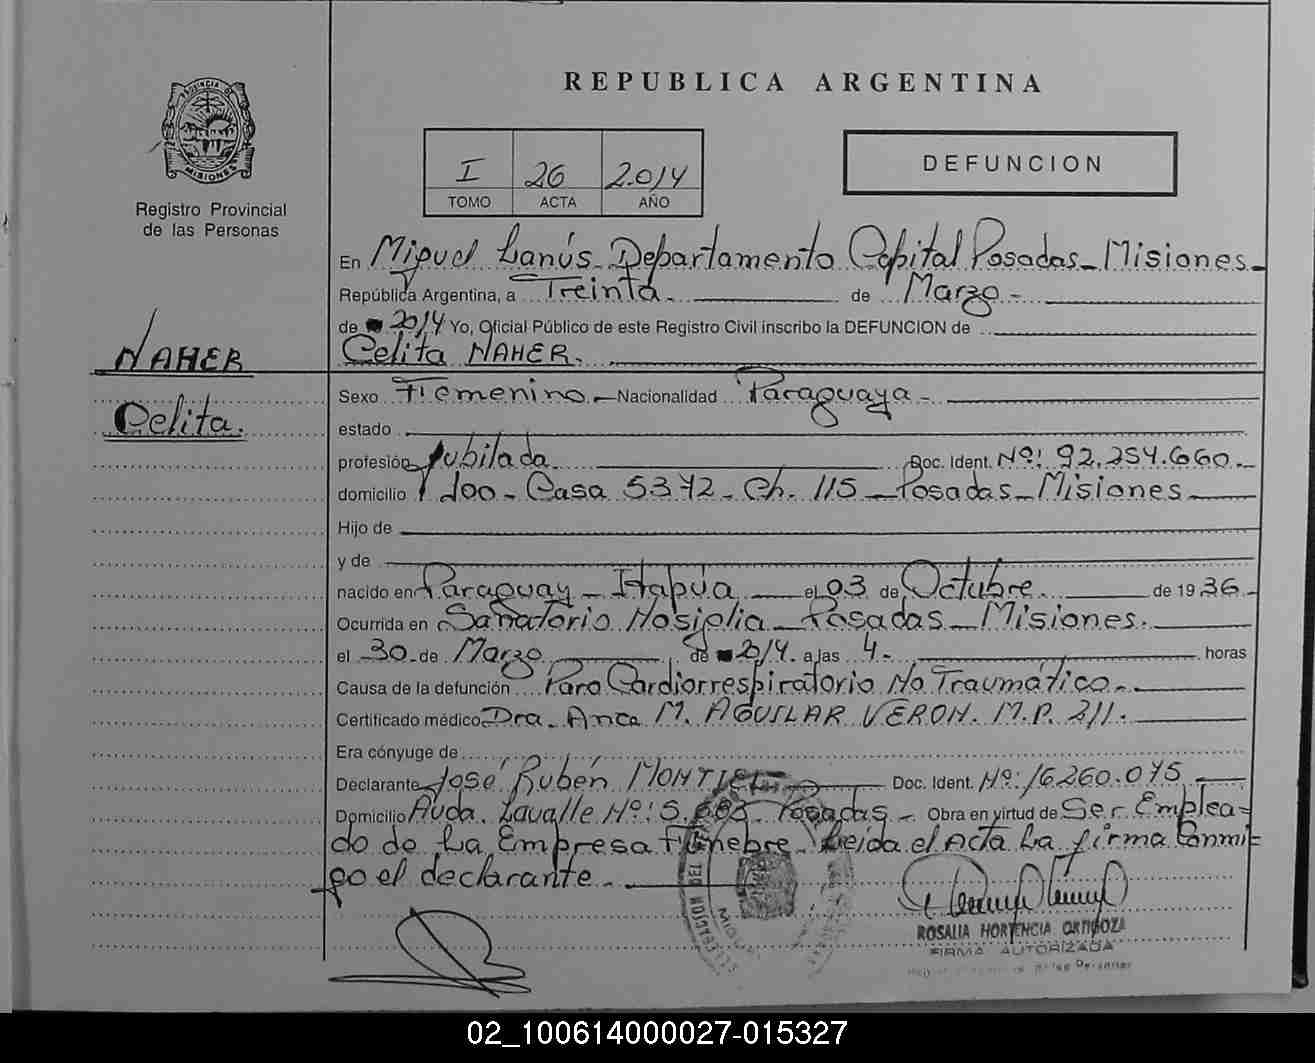 REPUBLICA ARGENTINA
PROVINCIA DE
MISIONES
Registro Provincial
de las Personas
I 26 2.014
TOMO ACTA AÑO
DEFUNCION
En Miguel Lanús Departamento Capital Posadas - Misiones -
República Argentina, a Treinta - de Marzo -
de 2014 Yo, Oficial Público de este Registro Civil inscribo la DEFUNCION de
Celita NAHER.
NAHER
Celita.
Sexo Femenino - Nacionalidad Paraguaya -
estado
profesión Jubilada Doc. Ident. Nº: 92.254.660 -
domicilio I 100 - Casa 5372 - Ch. 115 - Posadas - Misiones
Hijo de
y de
nacido en Paraguay - Itapúa el 03 de Octubre de 1936 -
Ocurrida en Sanatorio Posadas - Misiones.
el 30 - de Marzo de 2014 - a las 4 - horas
Causa de la defunción Paro Cardiorrespiratorio No Traumático -
Certificado médico Dra. Ana M. AGUILAR VERON. M.P. 211.
Era cónyuge de
Declarante José Rubén MONTIEL Doc. Ident. Nº: 16.260.075
Domicilio Avda. Lavalle Nº: 5.683 - Posadas - Obra en virtud de Ser Emplea-
do de La Empresa Fúnebre - Leida el Acta La firma Conmi-
go el declarante -
ROSALIA HORTENCIA ORTIGOZA
FIRMA AUTORIZADA
02_100614000027-015327